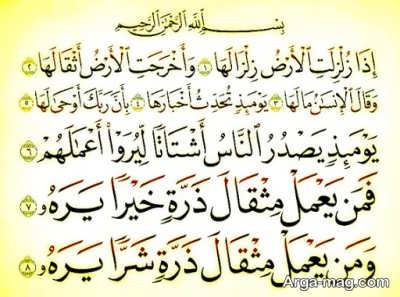 بِسْمِ ٱللَّهِ ٱلرَّحْمَٰنِ ٱلرَّحِيمِ
إِذَا زُلْزِلَتِ ٱلْأَرْضُ زِلْزَالَهَا ١ وَأَخْرَجَتِ ٱلْأَرْضُ أَثْقَالَهَا ٢
وَقَالَ ٱلْإِنسَٰنُ مَا لَهَا ٣ يَوْمَئِذٍ تُحَدِّثُ أَخْبَارَهَا ٤ بِأَنَّ رَبَّكَ أَوْحَىٰ لَهَا ٥
يَوْمَئِذٍ يَصْدُرُ ٱلنَّاسُ أَشْتَاتًا لِّيُرَوْا۟ أَعْمَٰلَهُمْ ٦
فَمَن يَعْمَلْ مِثْقَالَ ذَرَّةٍ خَيْرًا يَرَهُۥ ٧
وَمَن يَعْمَلْ مِثْقَالَ ذَرَّةٍ شَرًّا يَرَهُۥ ٨
Arga-mag.com